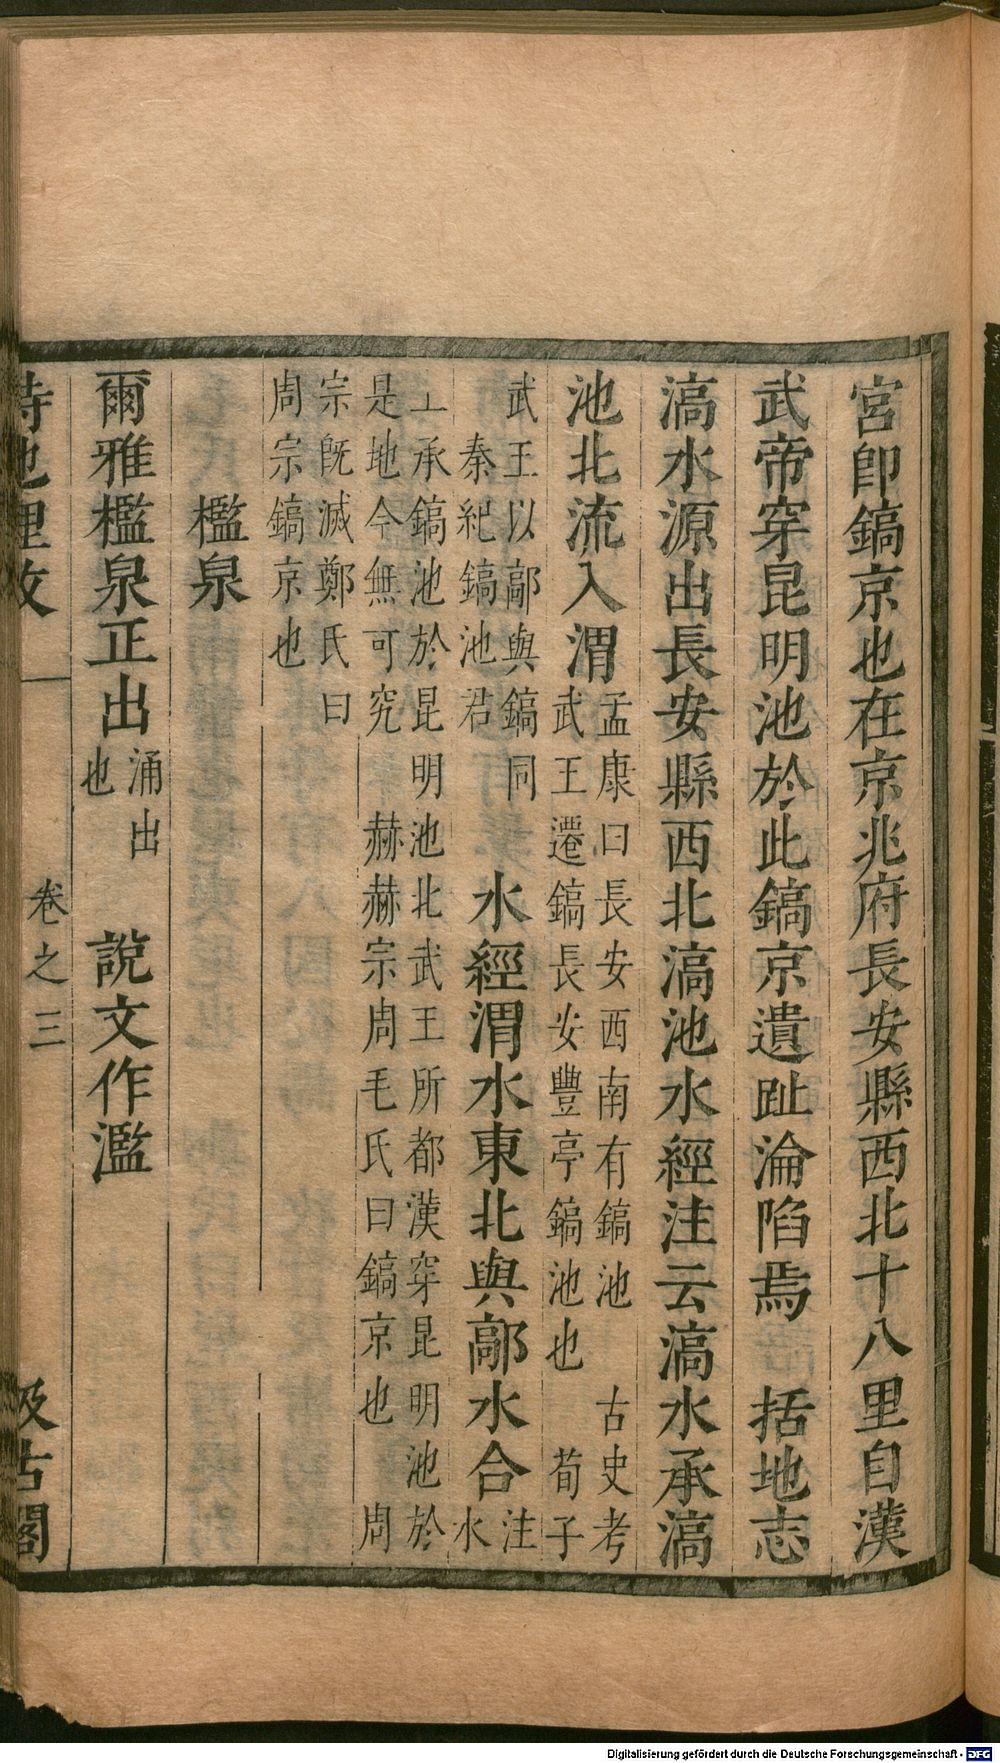 宮卽鎬京也在京兆府長安縣西北十八里自漢
武帝穿昆明池於此鎬京遺趾淪陷焉　括地志
滈水源出長安縣西北滈池水經注云滈水承滈
池北流入渭
孟康曰長安西南有鎬池　古史考
武王遷鎬長安豐亭鎬池也　荀子
武王以鄗與鎬同
秦紀鎬池君
水經渭水東北與鄗水合
注
水
上承鎬池於昆明池北武王所都漢穿昆明池於
是地今無可究　赫赫宗周毛氏曰鎬京也　周
宗旣滅鄭氏曰
周宗鎬京也
檻泉
爾雅檻泉正出
涌出
也
說文作濫
詩地理攷
卷之三
汲古閣
Digitalisierung gefördert durch die Deutsche Forschungsgemeinschaft - DFG